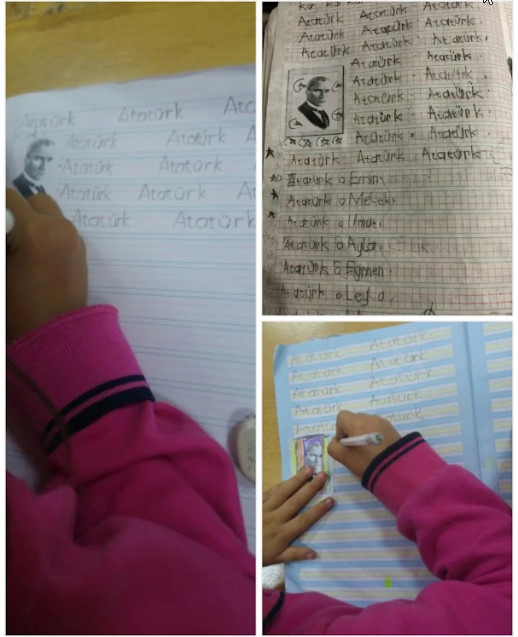 Atatürk Atatürk Ata
Atatürk Atatürk A
Atatürk Atatürk
Atatürk Atatürk A
Atatürk Atatürk
Atatürk Atatürk Atatürk
Atatürk Atatürk Atatürk
Atatürk Atatürk Atatürk
Atatürk Atatürk
Atatürk Atatürk
Atatürk Atatürk
Atatürk Atatürk
Atatürk Atatürk
Atatürk Atatürk Atatürk
Atatürk o Emin
Atatürk o
Atatürk o Umut
Atatürk o Ayla
Atatürk o
Atatürk o Leyla
Atatürk Atatürk
Atatürk Atatürk
Atatürk Atatürk
Atatürk Atatürk
Atatürk